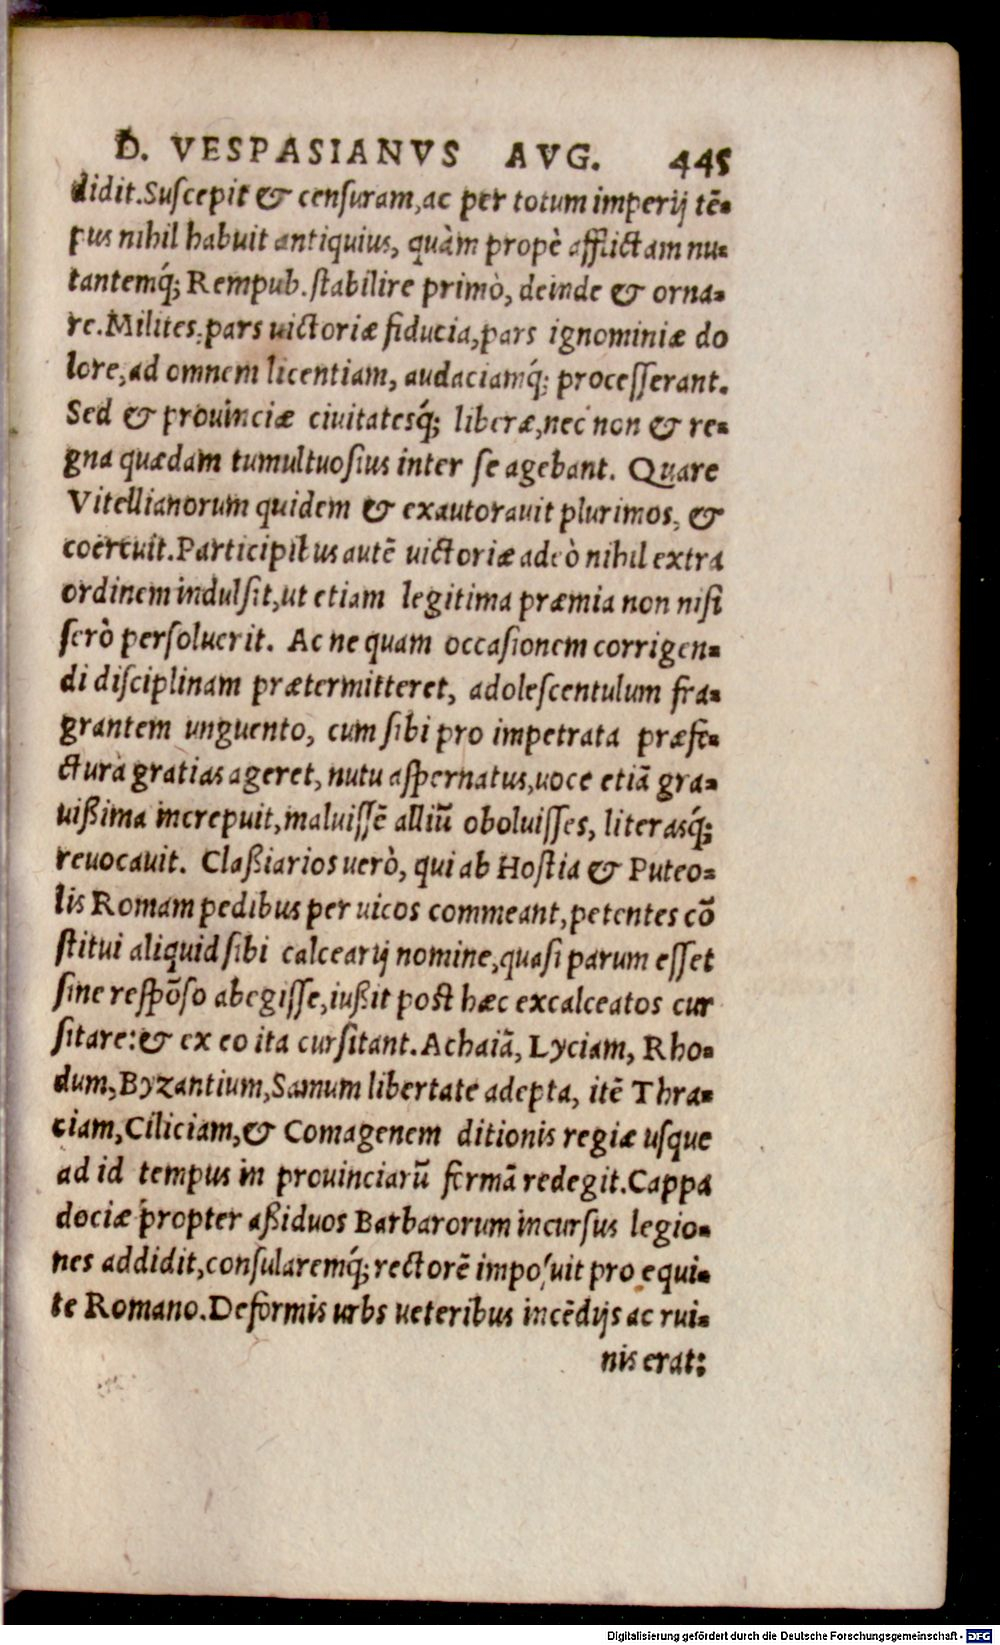 D. VESPASIANVS AVG. 445
didit.Suſcepit & cenſuram,ac per totum imperij tē-
pus nihil habuit antiquius, quàm propè afflictam nu-
tantemq́; Rempub.ſtabilire primò, deinde & orna-
re.Milites,pars uictoriæ fiducia,pars ignominiæ do
lore,ad omnem licentiam, audaciamq́; proceſſerant.
Sed & prouinciæ ciuitatesq́; liberæ,nec non & re-
gna quædam tumultuoſius inter ſe agebant. Quare
Vitellianorum quidem & exautorauit plurimos, &
coërcuit.Participibus autē uictoriæ adeò nihil extra
ordinem indulſit,ut etiam legitima præmia non niſi
ſerò perſoluerit. Ac ne quam occaſionem corrigen-
di diſciplinam prætermitteret, adoleſcentulum fra-
grantem unguento, cum ſibi pro impetrata præfe-
ctura gratias ageret, nutu aſpernatus,uoce etiã gra-
uißima increpuit,maluiſſē alliū oboluiſſes, literasq́;
reuocauit. Claßiarios uerò, qui ab Hoſtia & Puteo-
lis Romam pedibus per uicos commeant,petentes cō
ſtitui aliquid ſibi calcearij nomine,quaſi parum eſſet
ſine reſpōſo abegiſſe,iußit poſt hæc excalceatos cur
ſitare:& ex eo ita curſitant.Achaiã, Lyciam, Rho-
dum,Byzantium,Samum libertate adepta, itē Thra-
ciam,Ciliciam,& Comagenem ditionis regiæ uſque
ad id tempus in prouinciarū formã redegit.Cappa
dociæ propter aßiduos Barbarorum incurſus legio-
nes addidit,conſularemq́; rectorē impoſuit pro equi-
te Romano.Deformis urbs ueteribus incēdijs ac rui-
nis erat:
Digitalisierung gefördert durch die Deutsche Forschungsgemeinschaft - DFG